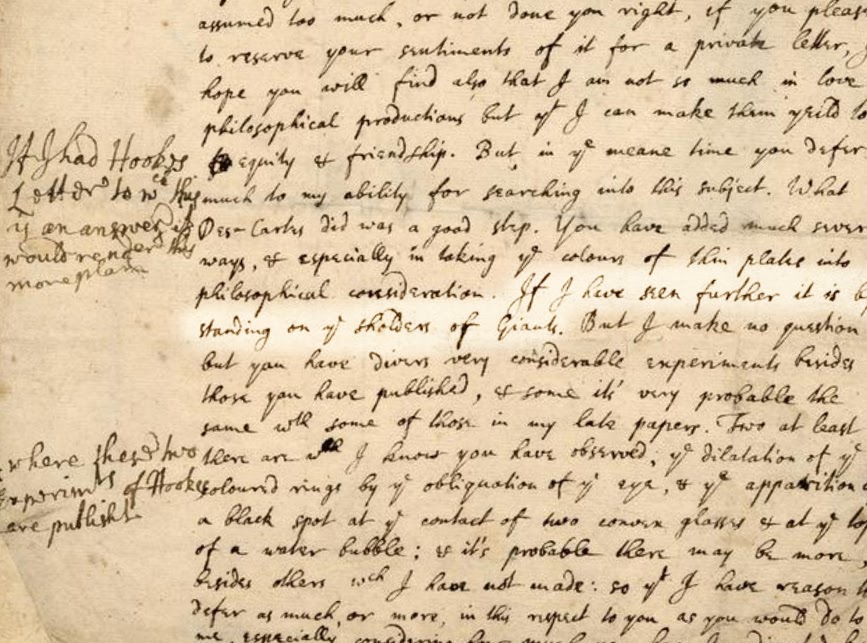 assumed too much, or not done you right, if you pleas
to reserve your sentiments of it for a private letter, I
hope you will find also that I am not so much in love
philosophical productions but yt I can make them yeild to
equity & friendship. But in ye meane time you defer
much to my ability for searching into this subject. What
Des-Cartes did was a good step. You have added much sever
ways, & especially in taking ye colours of thin plates into
philosophical consideration. If I have seen further it is b
standing on ye sholders of Giants. But I make no question
but you have divers very considerable experiments besides
those you have published, & some it's very probable the
same wth some of those in my late papers. Two at least
there are wch I know you have observed; ye dilatation of ye
coloured rings by ye obliquation of ye eye, & ye apparition o
a black spot at ye contact of two convex glasses & at ye top
of a water bubble; & it's probable there may be more,
besides others wch I have not made: so yt I have reason t
defer as much, or more, in this respect to you as you would do to
me, especially considering
If I had Hookes
Letter to wch this
is an answer it
would render this
more plain
where these two
experimts of Hookes
are publisht